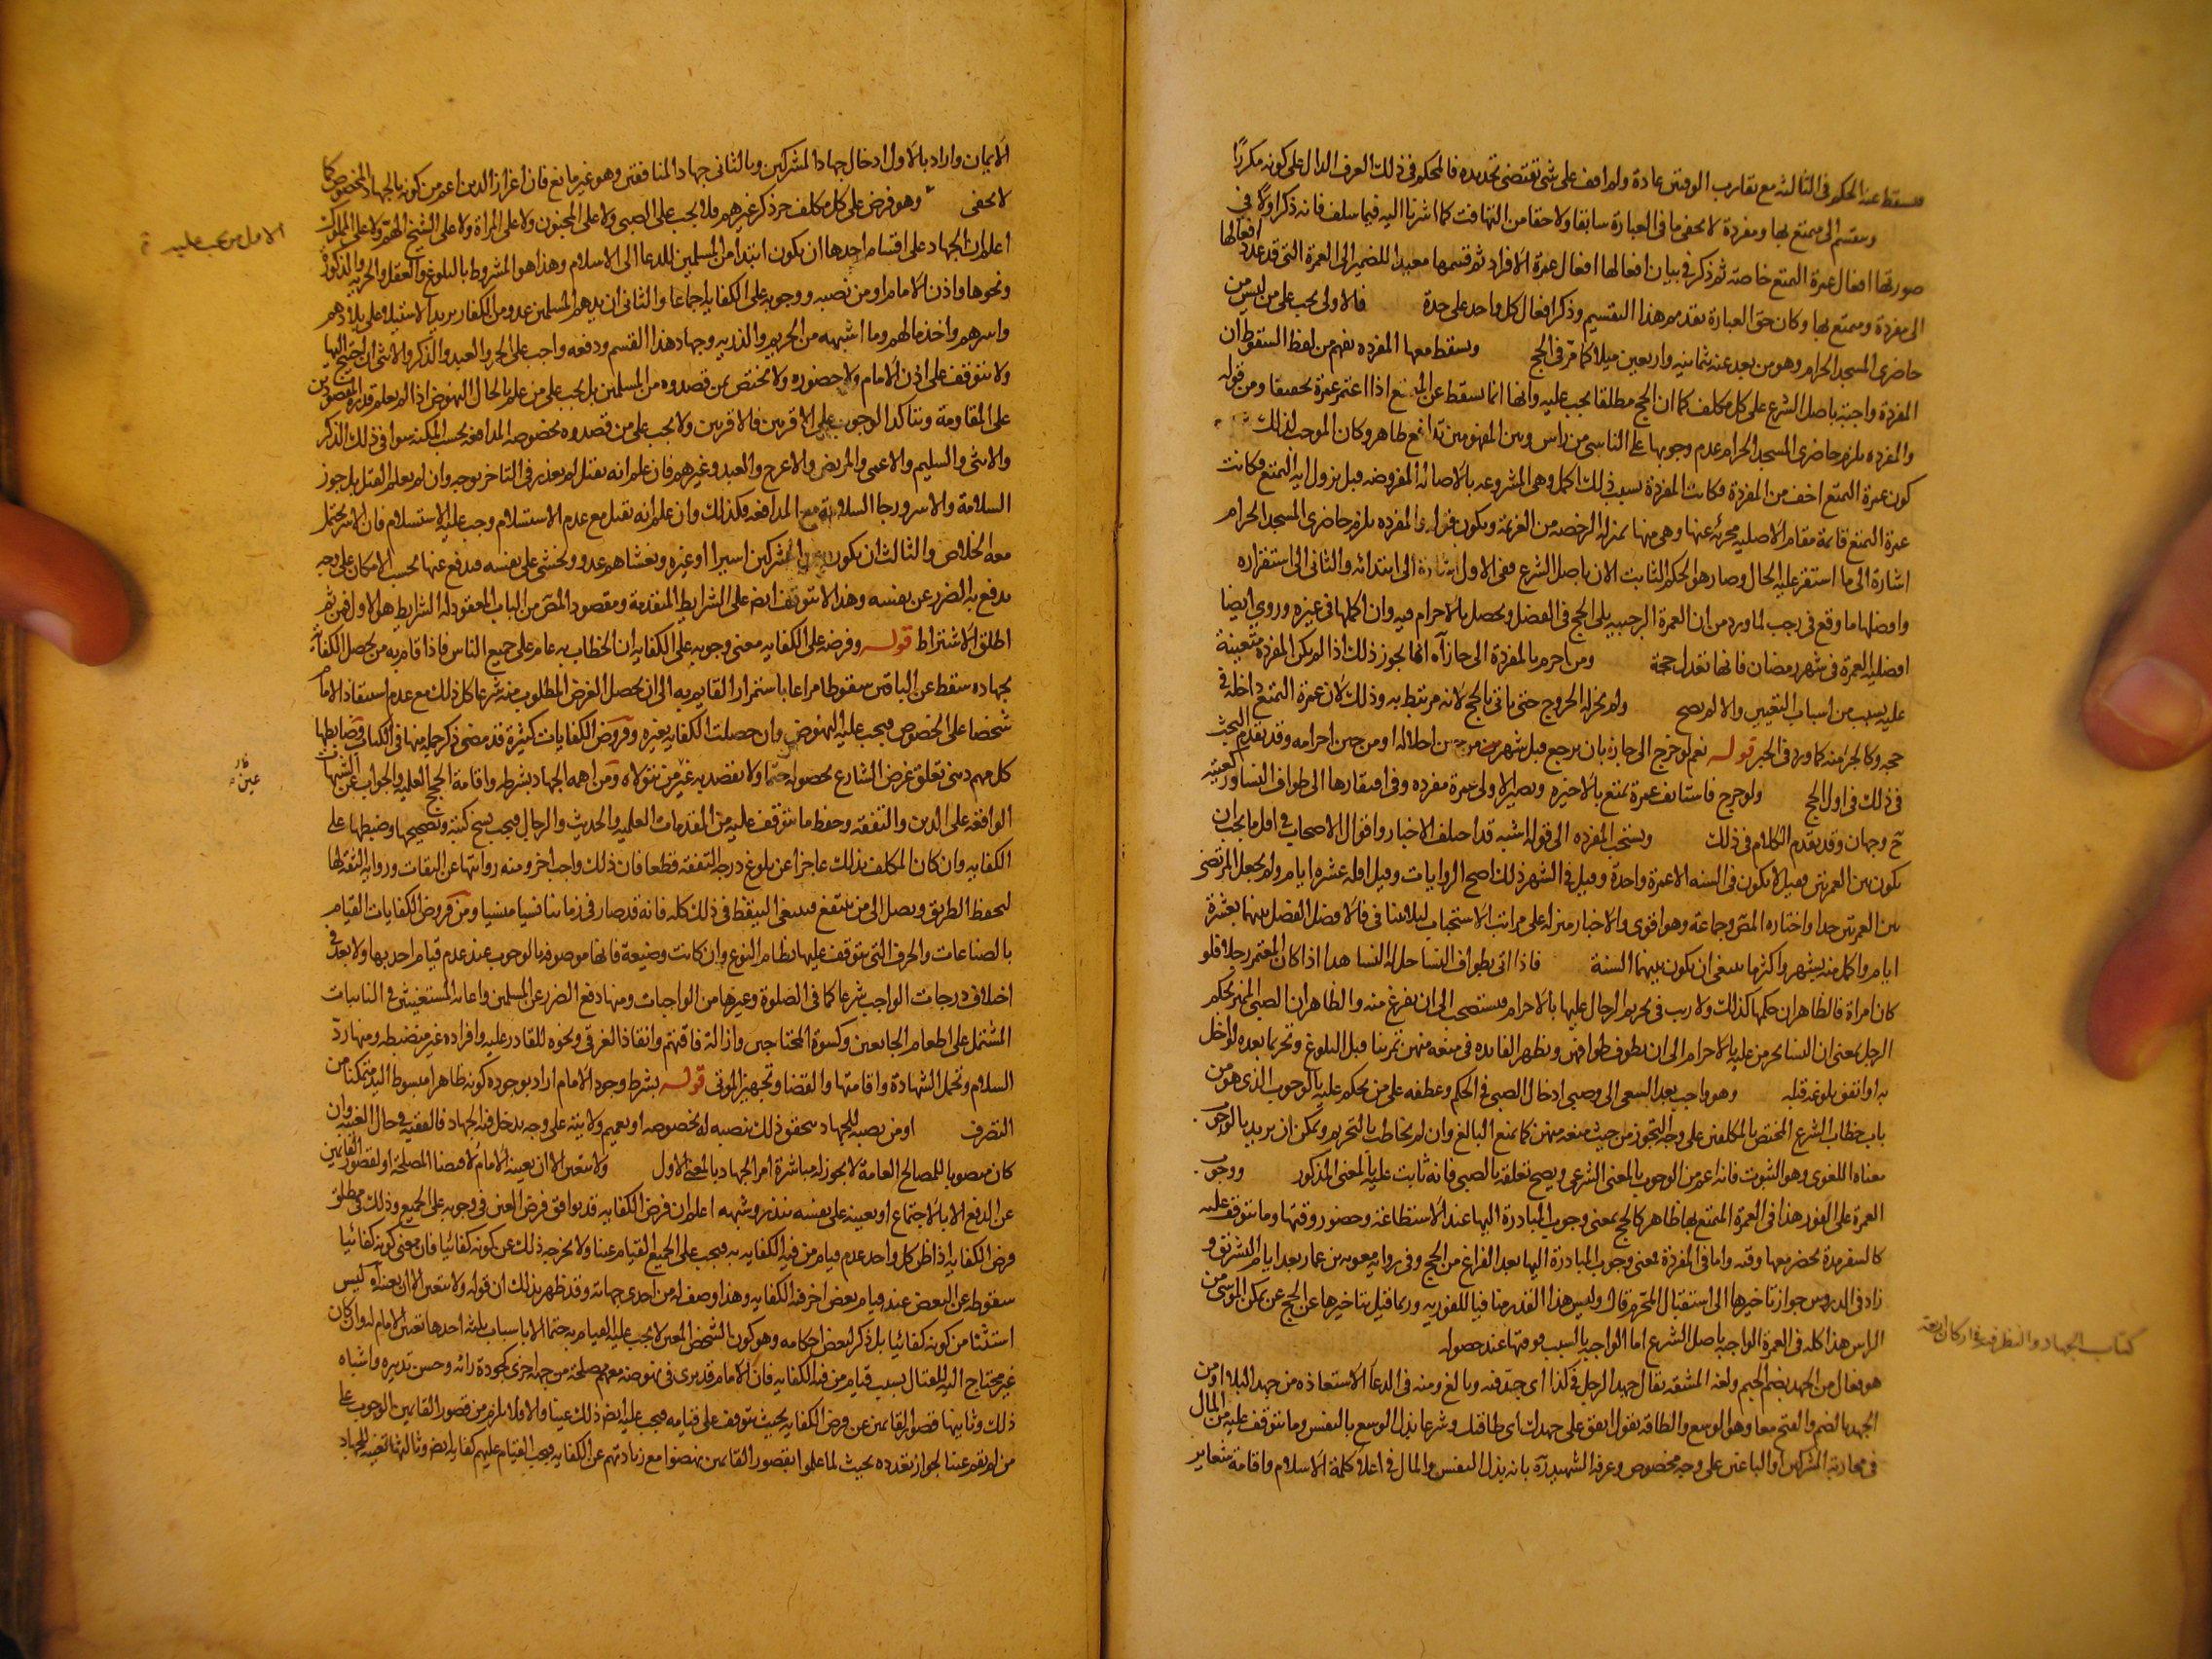 فيسقط عنه الحكم في الثالثة مع تقارب الوقتين عادة ولم اقف على شي تقتضي تحديده فالمحكم في ذلك العرف الدال على كونه مكررا
وينقسم الى متمتع بها ومفردة لا يخفى ما في العبارة سابقا ولاحقا من التهافت كما اشرنا اليه فيما سلف فانه ذكر اولا في
صورتها افعال عمرة التمتع خاصة ثم ذكر في بيان افعالها افعال عمرة الافراد ثم قسمها معيدا للضمير الى العمرة التي قد عدد افعالها
الى مفردة ومتمتع بها وكان حق العبارة تقديم هذا التقسيم وذكر افعال كل واحد على حدة فالاولى يجب على من ليس من
حاضري المسجد الحرام وهو من بعد عنه ثمانية واربعين ميلا كما مر في الحج ويسقط معها المفرده يفهم من لفظ السقوط ان
المفردة واجبة باصل الشرع على كل مكلف كما ان الحج مطلقا يجب عليه وانها انما يسقط عن المتمتع اذا اعتمر عمرة تخفيفا ومن قوله
والمفرده يلزم حاضري المسجد الحرام عدم وجوبها على النائي من راس وبين المفهومين تدافع ظاهر وكان الموجب لذلك
كون عمرة التمتع اخف من المفردة فكانت المفردة بسبب ذلك اكمل وهي المشروعه بالاصالة المفروضه قبل نزول اية التمتع فكانت
عمرة التمتع قائمة مقام الاصلية مجزئه عنها وهي منها بمنزلة الرخصه من العزيمة ويكون قوله والمفرده يلزم حاضري المسجد الحرام
اشارة الى ما استقر عليه الحال وصار هو الحكم الثابت الان باصل الشرع ففي الاول اشارة الى ابتدائه والثاني الى استقراره
وافضلها ما وقع في رجب لما ورد من ان العمرة الرجبية يلي الحج في الفضل ويحصل بالاحرام فيه وان اكملها في غيره وروي ايضا
افضلية العمرة في شهر رمضان فانها تعدل حجة ومن احرم بالمفردة الى جاز اه انما يجوز ذلك اذا لم يكن المفردة متعينة
عليه بسبب من اسباب التعيين والا لم يصح ولم يجز له الخروج حتى ياتي بالحج لانه مرتبط به وذلك لان عمرة التمتع داخله في
حجه وكالجزء منه كما ورد في الخبر قوله نعم لو خرج الى جاز بان يرجع قبل شهر من حين احلاله او من حين احرامه وقد تقدم البحث
في ذلك في اول الحج ولو خرج فاستانف عمرة تمتع بالاخيره ويصير الاولى عمرة مفرده وفي افتقارها الى طواف النسا ورکعتيه
ح وجهان وقد تقدم الكلام في ذلك ويستحب المفرده الى قوله اشبه قد اختلف الاخبار واقوال الاصحاب في اقل ما يجب ان
يكون بين العمرتين فقيل لا يكون في السنه الا عمرة واحدة وقيل في الشهر ذلك اصح الروايات وقيل اقله عشرة ايام ولم يجعل المرتضى
بين العمرتين حدا واختاره المص وجماعة وهو اقوى والاخبار منزلة على مراتب الاستحباب لئلا يتنافى فالافضل الفصل بينهما بعشرة
ايام واكمل منه بشهر واكثر ما ينبغي ان يكون بينهما السنة فاذا اتى بطواف النسا حل له النسا هذا اذا كان المعتمر رجلا فلو
كان امراة فالظاهر ان حكمها كذلك ولا ريب في تحريم الرجال عليها بالاحرام فيستصحب الى ان يفرغ منه والظاهر ان الصبي المميز بحكم
الرجل بمعنى ان النسا يحرمن عليه بالاحرام الى ان يطوف طوافهن ويظهر الفايده في منعه منهن تمرينا قبل البلوغ وتحريما بعده لو اخل
به او اتفق بلوغه قبله وهو واجب بعد السعي الى وصبي ادخال الصبي في الحكم وعطفه على من يحكم عليه بالوجوب الذي هو من
باب خطاب الشرع المختص بالمكلفين على وجه التجوز من حيث منعه منهن كما يمنع البالغ وان لم يخاطب بالتحريم ويمكن ان يريد بالوجوب
معناه اللغوي وهو الثبوت فانه اعم من الوجوب بالمعنى الشرعي ويصح تعلقه بالصبي فانه ثابت عليه بالمعنى المذكور ووجوب
العمرة على الفور هذا في العمرة المتمتع بها ظاهر كالحج بمعنى وجوب المبادرة اليها عند الاستطاعة وحضور وقتها وما يتوقف عليه
كالسفر مدة يحضر معها وقته واما في المفردة فمعنى وجوب المبادرة اليها بعد الفراغ من الحج وفي رواية معويه بن عمار بعد ايام التشريق و
زاد في الدروس جواز تاخيرها الى استقبال المحرم قال وليس هذا القدر منافيا للفوريه وربما قيل بتاخيرها عن الحج عن يمكن الموسى من
الراس هذا كله في العمرة الواجبه باصل الشرع اما الواجبه بالسبب فوقتها عند حصوله
كتاب الجهاد والنظر في اركان اربعة
هو فعال من الجهد بضم الجيم ولغة المشقه يقال جهد الرجل في كذا اي جد فيه وبالغ ومنه في الدعا الاستعاذه من جهد البلا او من
الجهد بالضم والفتح معا وهو الوسع والطاقه يقول انفق على جهدك اي طاقتك وشرعا بذل الوسع بالنفس وما يتوقف عليه من المال
في محاربة المشركين او الباغين على وجه مخصوص وعرفه الشهيد ره بانه بذل النفس والمال في اعلاء كلمة الاسلام واقامة شعاير
الايمان واراد بالاول ادخال جهاد المشركين وبالثاني جهاد المنافقين وهو غير مانع فان اعزاز الدين اعم من كونه بالجهاد المخصوص كما
لا يخفى وهو فرض على كل مكلف حر ذكر غير هم فلا يجب على الصبي ولا على المجنون ولا على المراة ولا على الشيخ الهم ولا على المملوك
الاول من يجب عليه
اعلم ان الجهاد على اقسام احدها ان يكون ابتدا من المسلمين للدعا الى الاسلام وهذا هو المشروط بالبلوغ والعقل والحرية والذكورة
ونحوها واذن الامام او من نصبه ووجوبه على الكفاية اجماعا والثاني ان يدهم المسلمين عدو من الكفار يريد الاستيلا على بلادهم
واسرهم واخذ مالهم وما اشبهه من الحريم والذريه وجهاد هذا القسم ودفعه واجب على الحر والعبد والذكر والانثى ان احتيج اليها
ولا يتوقف على اذن الامام ولا حضوره ولا يختص بمن قصدوه من المسلمين بل يجب على من علم بالحال النهوض اذا لم يعلم قدرة المقصودين
على المقاومة ويتاكد الوجوب على الاقربين فالاقربين ولا يجب على من قصدوه بخصوصه المدافعه بحسب المكنة سوا في ذلك الذكر
والانثى والسليم والاعمى والمريض والاعرج والعبد وغيرهم فان علم انه يقتل لم يعذر في التاخر بوجه وان لم يعلم القتل بل جوز
السلامة والاسر ورجا السلامة مع المدافعه فكذلك وان علم انه يقتل مع عدم الاستسلام وجب عليه الاستسلام فان الاسر يحتمل
معه الخلاص والثالث ان يكون بين المشركين اسيرا او غيره ويغشاهم عدو ويخشى على نفسه فيدفع عنها بحسب الامكان على وجه
يدفع به الضرر عن نفسه وهذا لا يتوقف ايض على الشرايط المتقدمة ومقصود المص من الباب المعقود له الشرايط هو الاول فمن ثم
اطلق الاشتراط قوله وفرضه على الكفايه معنى وجوبه على الكفايه ان الخطاب به عام على جميع الناس فاذا قام به من يحصل الكفاية
بجهاده سقط عن الباقين سقوطا مراعا باستمرار القايم به الى ان يحصل الغرض المطلوب منه شرعا كل ذلك مع عدم استنقاذ الامام
شخصا على الخصوص فيجب عليه النهوض وان حصلت الكفايه بغيره وفروض الكفايات كثيرة قد مضى ذكر جملة منها في الكتاب وضابطها
كل مهم ديني تعلق غرض الشارع بحصوله حتما ولا يقصد به عين من يتولاه ومن اهمه الجهاد بشرطه واقامة الحجج العلميه والجواب عن الشبهات
عين
الواقعه على الدين والتفقه وحفظ ما يتوقف عليه من المقدمات العلميه والحديث والرجال فيجب نسخ كتبه وتصحيحها وضبطها على
الكفايه وان كان المكلف بذلك عاجزا عن بلوغ درجة التفقه قطعا فان ذلك واجب اخر ومنه روايتها عن الثقات وروايه الثقه لها
لتحفظ الطريق ويصل الى من ينتفع فينبغي التيقظ في ذلك كله فانه قد صار في زماننا نسيا منسيا ومن فروض الكفايات القيام
بالصناعات والحرف التي يتوقف عليها نظام النوع وان كانت وضيعة فانها موصوفه بالوجوب عند عدم قيام احد بها ولا بعد في
اختلاف درجات الواجب شرعا كما في الصلوة وغيرها من الواجبات ومنها دفع الضرر عن المسلمين واعانة المستغيثين في النائبات
المشتمل على اطعام الجايعين وكسوة المحتاجين وازالة فاقتهم وانقاذ الغرقى ونحوه للقادر عليه وافراده غير منضبطه ومنها رد
السلام وتحمل الشهادة واقامتها والقضا وتجهيز الموتى قوله بشرط وجود الامام اراد بوجوده كونه ظاهرا مبسوط اليد متمكنا من
التصرف او من نصبه للجهاد يتحقق ذلك بنصبه له بخصوصه او بتعميم ولايته على وجه يدخل فيه الجهاد فالفقيه في حال الغيبة وان
كان منصوبا للمصالح العامة لا يجوز له مباشرة امر الجهاد بالمعنى الاول ولا يتعين الا ان يعينه الامام لاقتضا المصلحة او لقصور القائمين
عن الدفع الا بالاجتماع او يعينه على نفسه بنذر وشبهه اعلم ان فرض الكفايه قد يوافق فرض العين في وجوبه على الجميع وذلك في مطلق
فرض الكفايه اذا ظن كل واحد عدم قيام من فيه الكفايه به فيجب على الجميع القيام عينا ولا يخرجه ذلك عن كونه كفائيا فان معنى كونه كفائيا
سقوطه عن البعض عند قيام بعض اخر فيه الكفايه وهذا وصف له من احدى جهاته وقد ظهر بذلك ان قوله ولا يتعين الا ان يعينه اه ليس
استثنا من كونه كفائيا بل ذكر لبعض احكامه وهو كون الشخص المعين لا يجب عليه القيام به حتما الا باسباب ثلثه احدها تعيين الامام له وان كان
غير محتاج اليه للقتال بسبب قيام من فيه الكفايه فان الامام قد يرى في نهوضه معهم مصلحة من جهة اخرى كجودة رائه وحسن تدبيره واشباه
ذلك وثانيها قصور القائمين عن فرض الكفايه بحيث يتوقف على قيامه فيجب عليه ايض ذلك عينا والا فلا يلزم من قصور القائمين الوجوب على
من لم يقم عينا لجواز تعدده بحيث لما علموا بقصور القائمين نهضوا مع زيادتهم عن الكفايه فيجب القيام عليهم كفاية ايض وثالثها تعيينه للجهاد